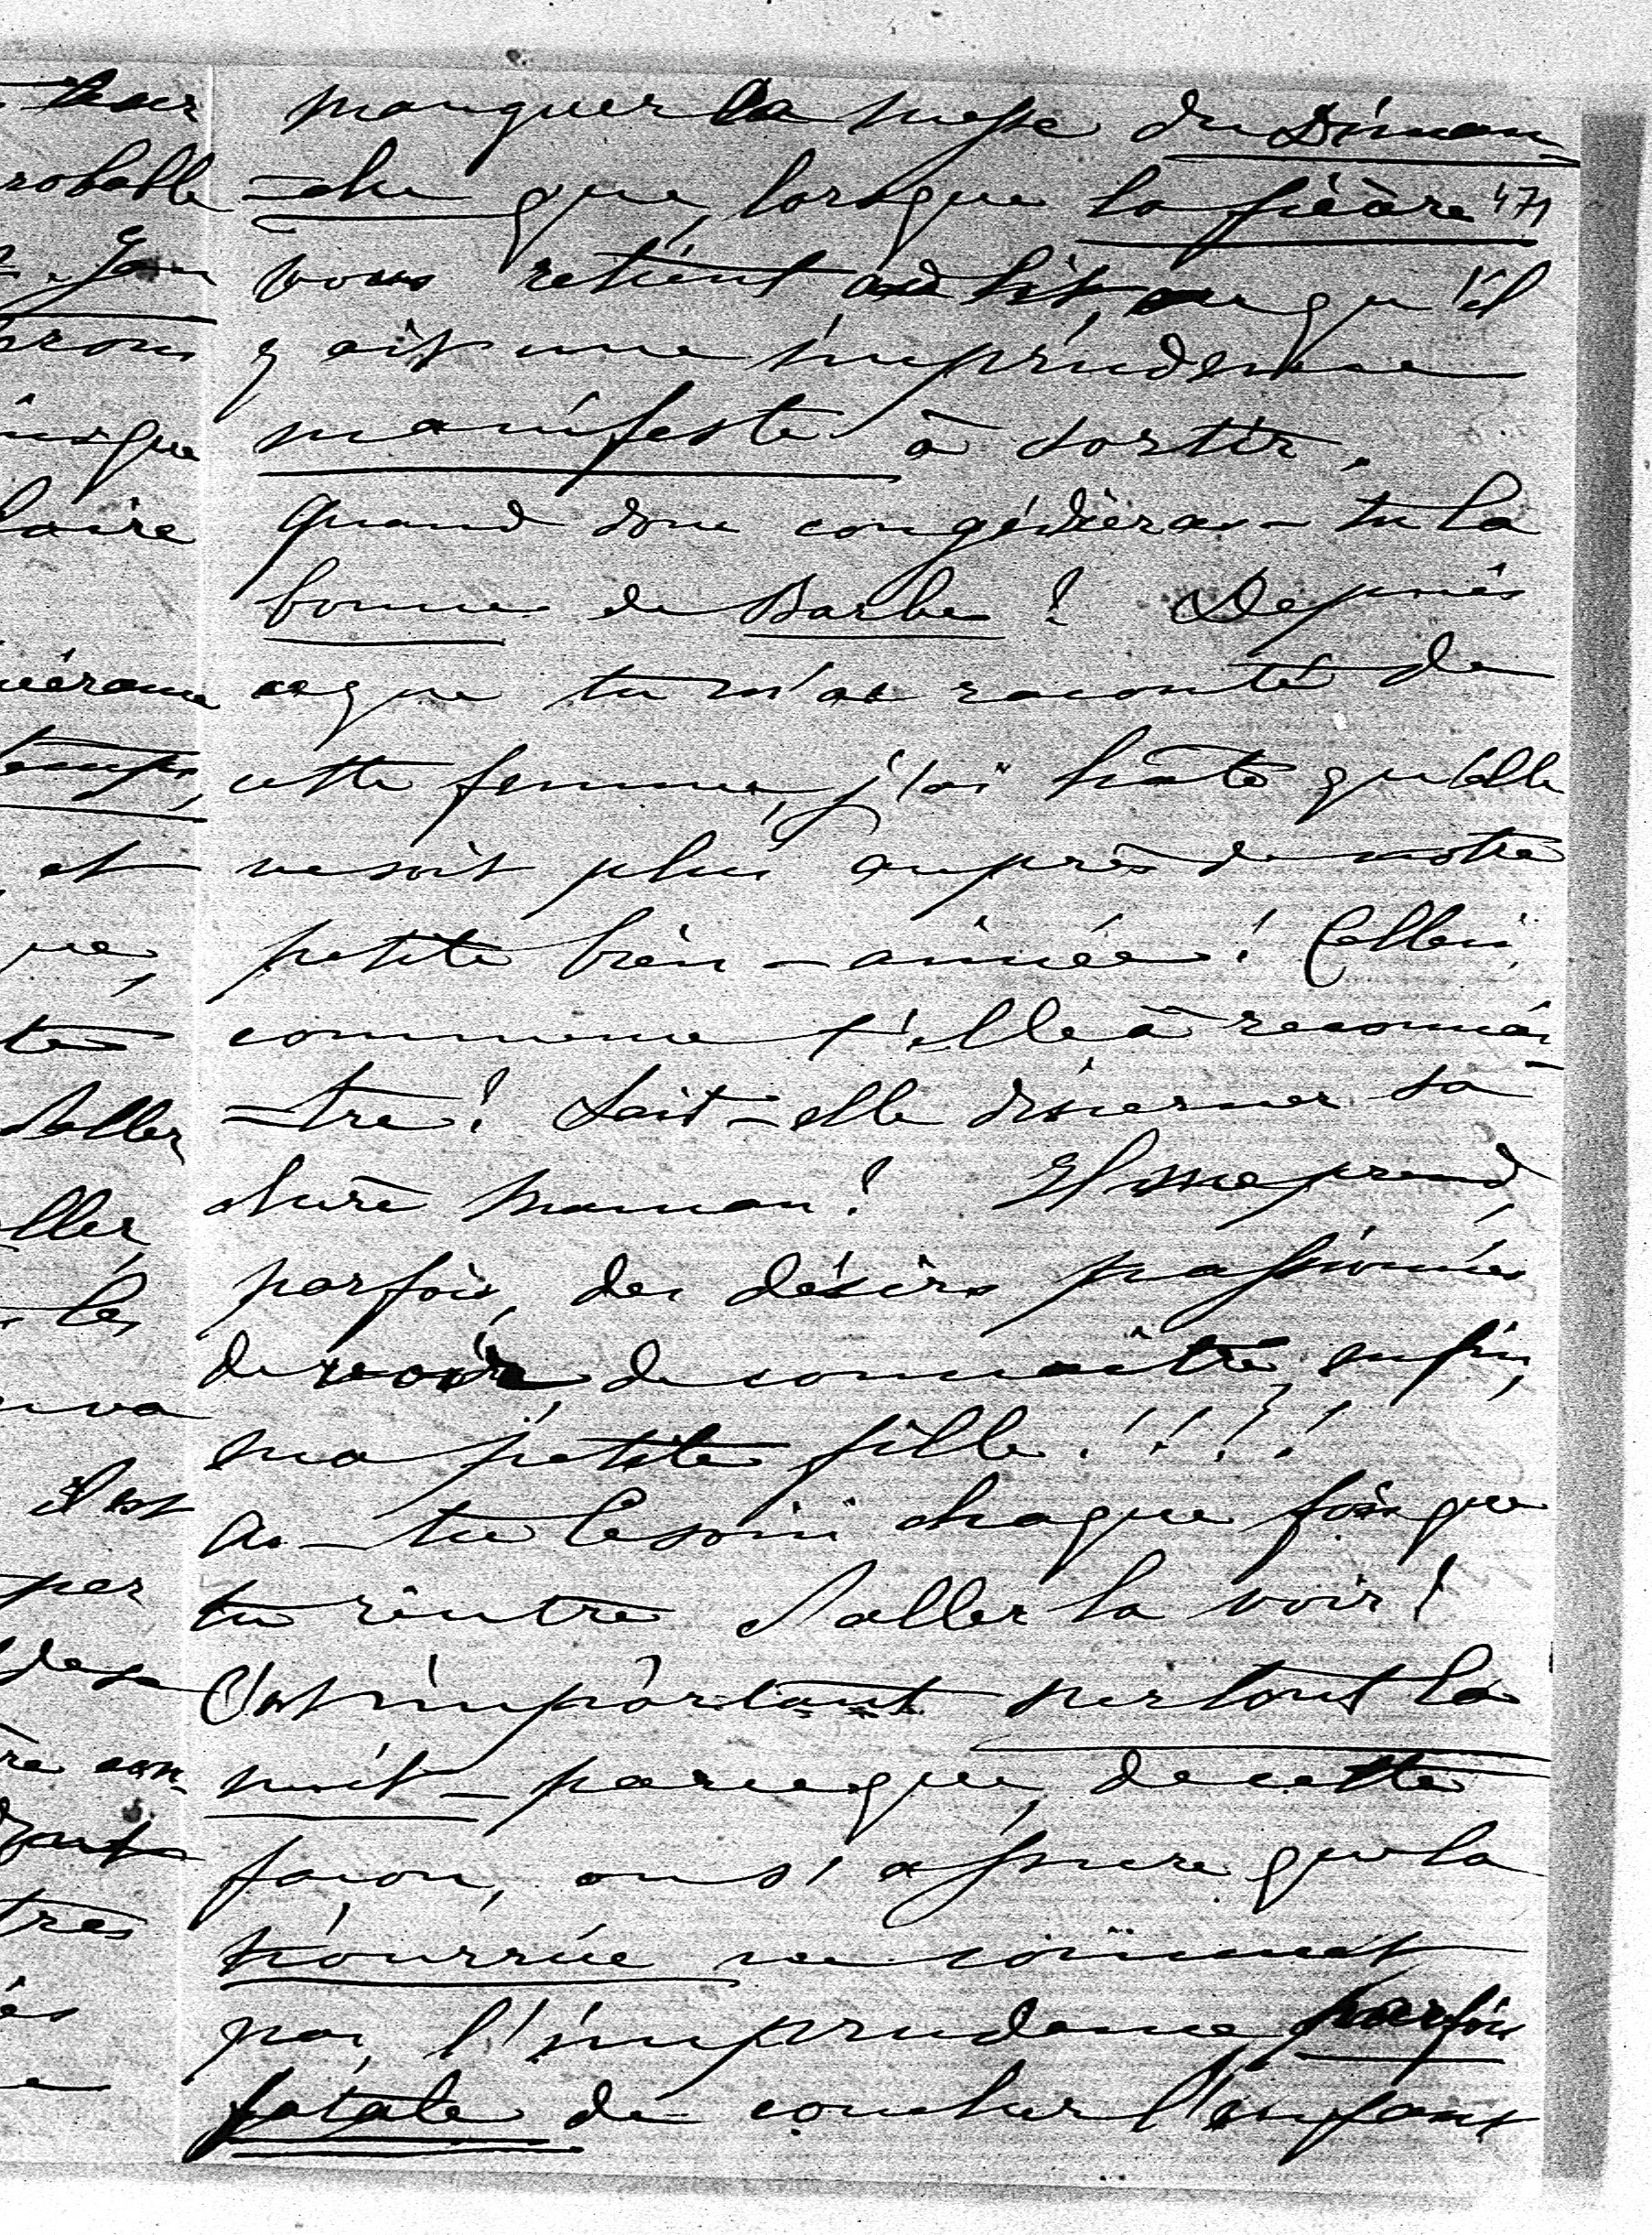 manquer la messe du Diman
=che que, lorsque la fièvre 471
vous retient au lit, ou qu'il
y ait une imprudence
manifeste à sortir.
Quand donc congédieras-tu la
bonne de Barbe? Depuis
ce que tu m'as raconté de
cette femme, j'ai hâte qu'elle
ne soit plus auprès de notre
petite bien-aimée! Celle-ci,
commence t'elle à reconnaî
=tre? Sait-elle discerner sa
chère maman? Il me prend,
parfois, des désirs passionnés
de voir, de connaître, enfin,
ma petite fille!!!!
As-tu le soin chaque fois que
tu rentre d'aller la voir?
C'est important surtout la
nuit - parceque, de cette
facon, on s'assure que la
nourrice ne commet
pas, l'imprudence, parfois
fatale de coucher l'enfant
robable
et
d'aller
aller
les
il est
par
très